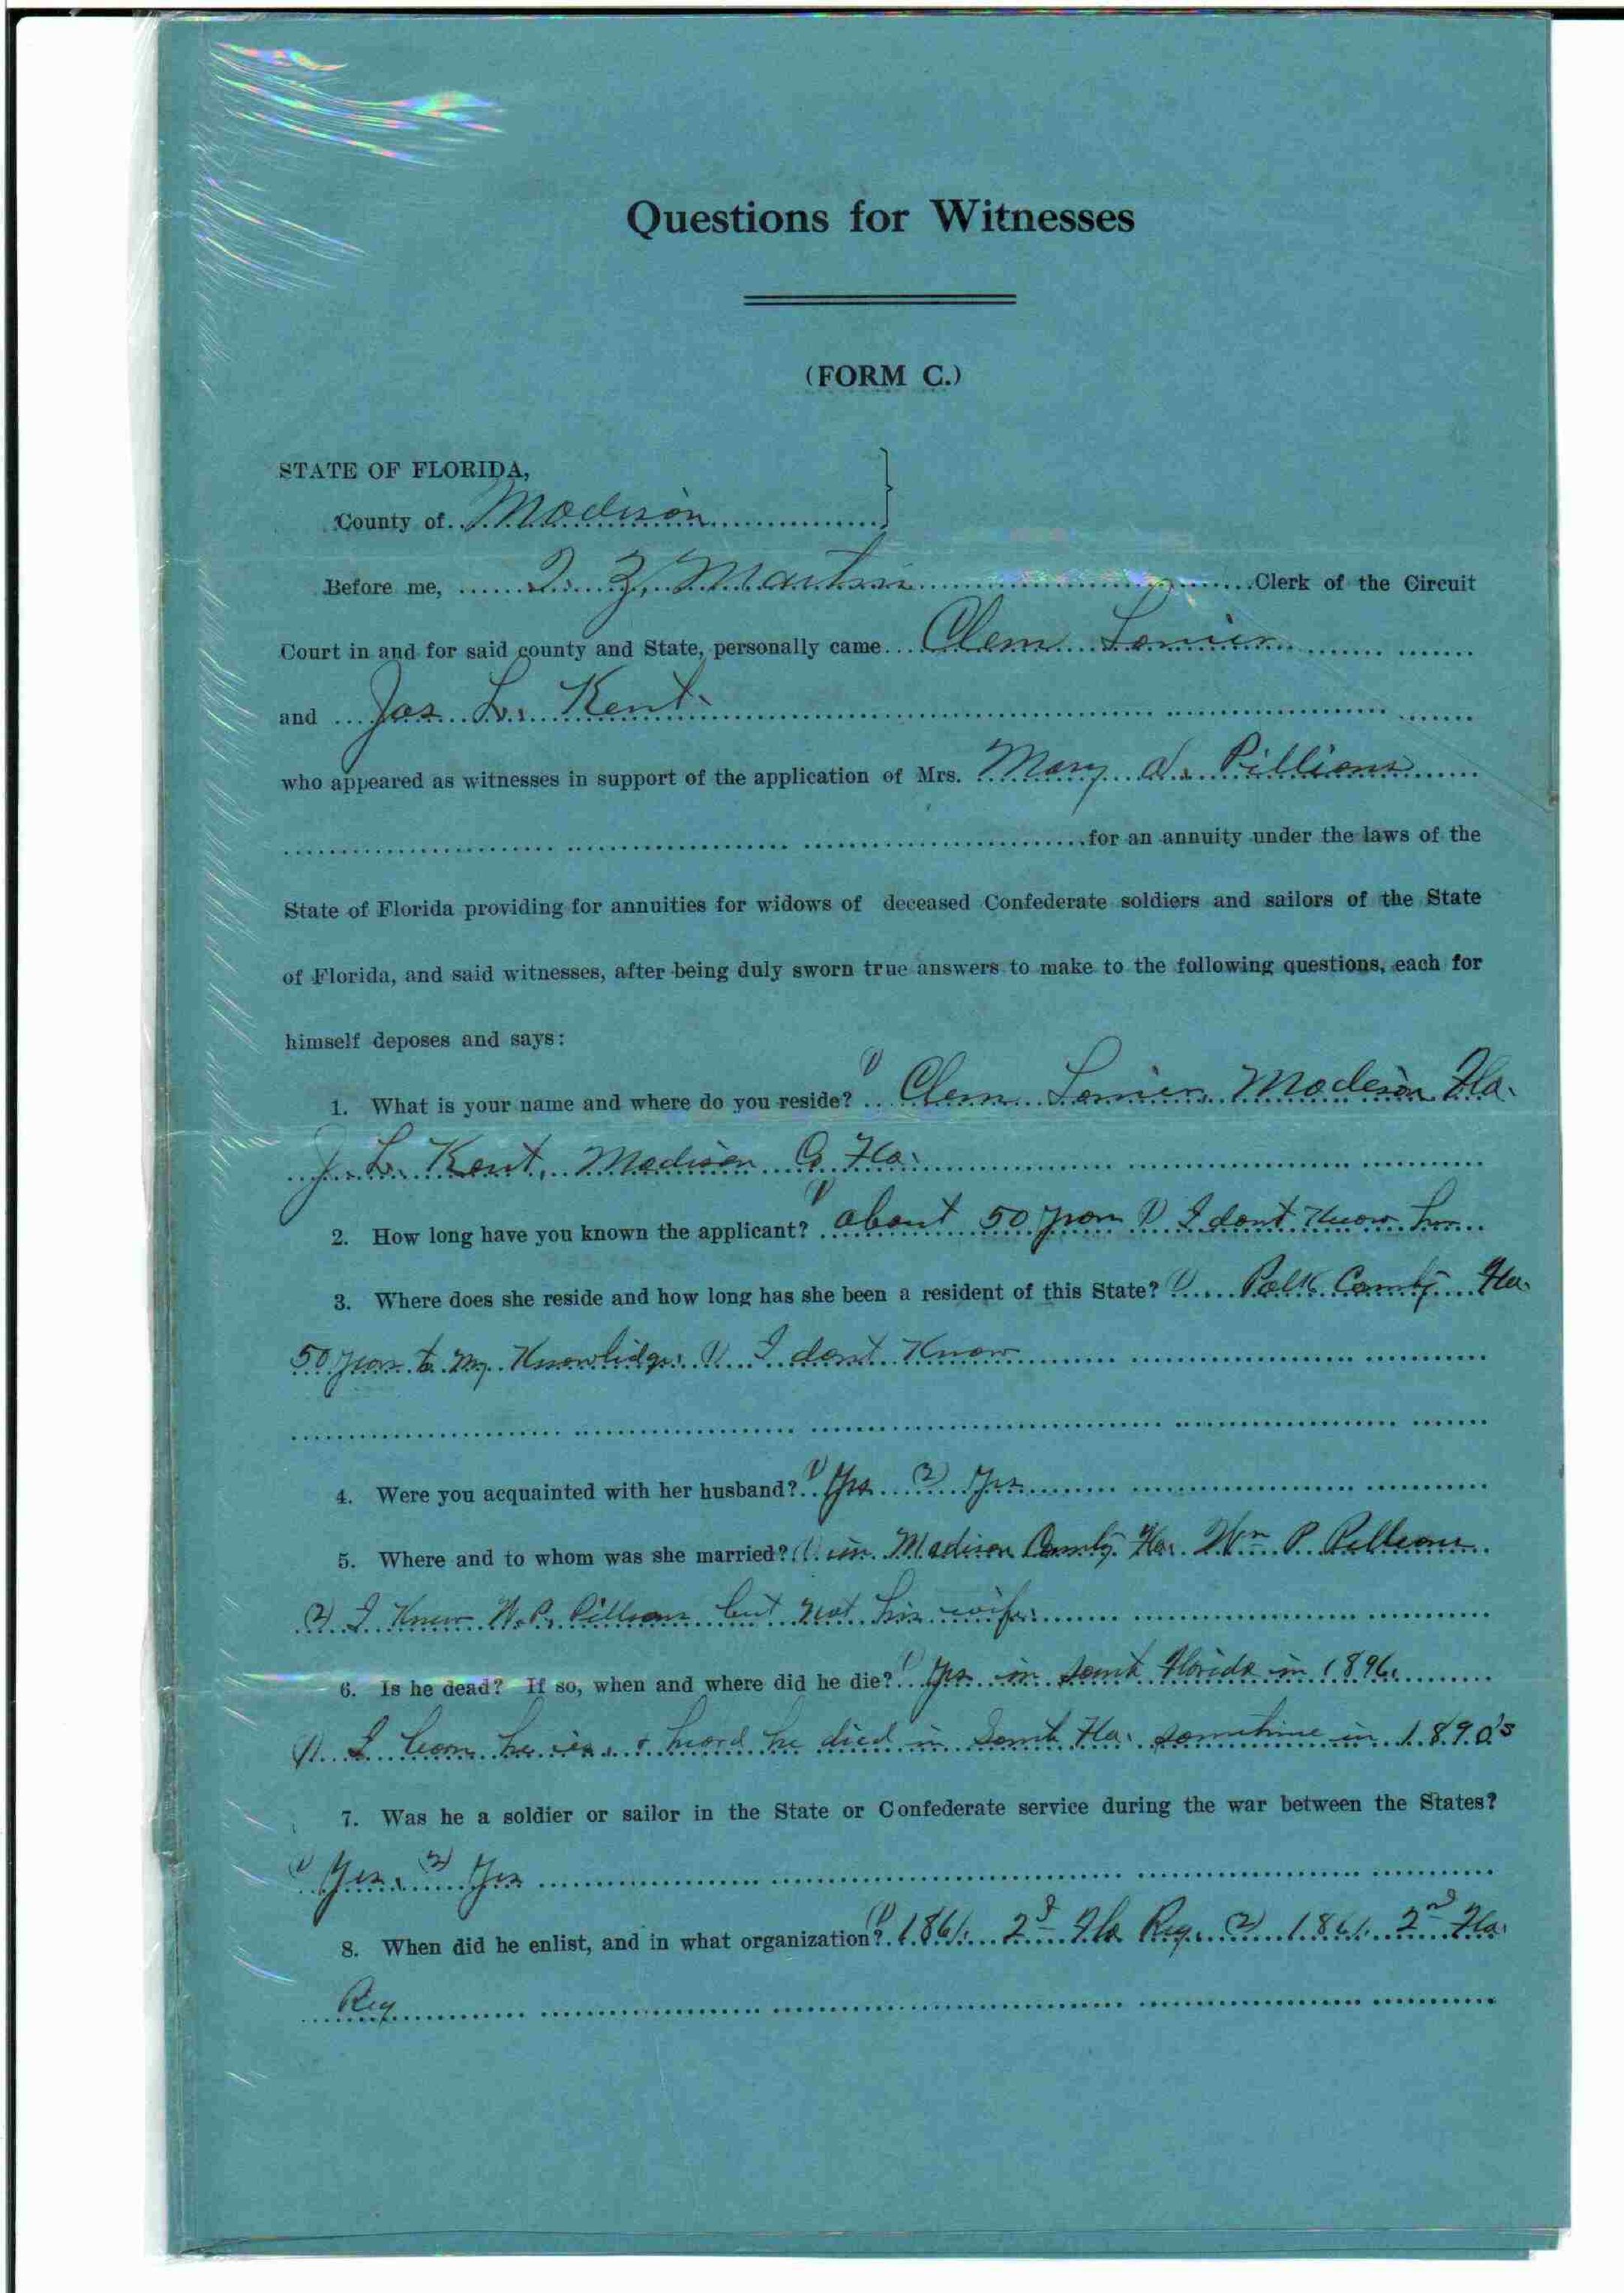 Questions for Witnesses
(FORM C.)
STATE OF FLORIDA,
County of Madison
Before me, Martin Clerk of the Circuit
Court in and for said county and State, personally came Clem Lanier
and Jas L. Kent
who appeared as witnesses in support of the application of Mrs. Mary A. Pillians
for an annuity under the laws of the
State of Florida providing for annuities for widows of deceased Confederate soldiers and sailors of the State
of Florida, and said witnesses, after being duly sworn true answers to make to the following questions, each for
himself deposes and says:
1. What is your name and where do you reside? (1) Clem Lanier Madison Fla.
J. L. Kent, Madison Co Fla.
2. How long have you known the applicant? (1) about 50 years I dont Know her
3. Where does she reside and how long has she been a resident of this State? (1) Polk County Fla.
50 years to my Knowlidge. I dont Know
4. Were you acquainted with her husband? (1) Yes (2) Yes
5. Where and to whom was she married? (1) in Madison County Fla. Wm P. Pillians
(2) I Knew W. P. Pillians but not his wife.
6. Is he dead? If so, when and where did he die? (1) Yes in South Florida in 1896.
I learn he is, & heard he died in South Fla. sometime in 1890's
7. Was he a soldier or sailor in the State or Confederate service during the war between the States?
(1) Yes. (2) Yes
8. When did he enlist, and in what organization? (1) 1861. 2d Fla Reg. (2) 1861. 2nd Fla.
Reg